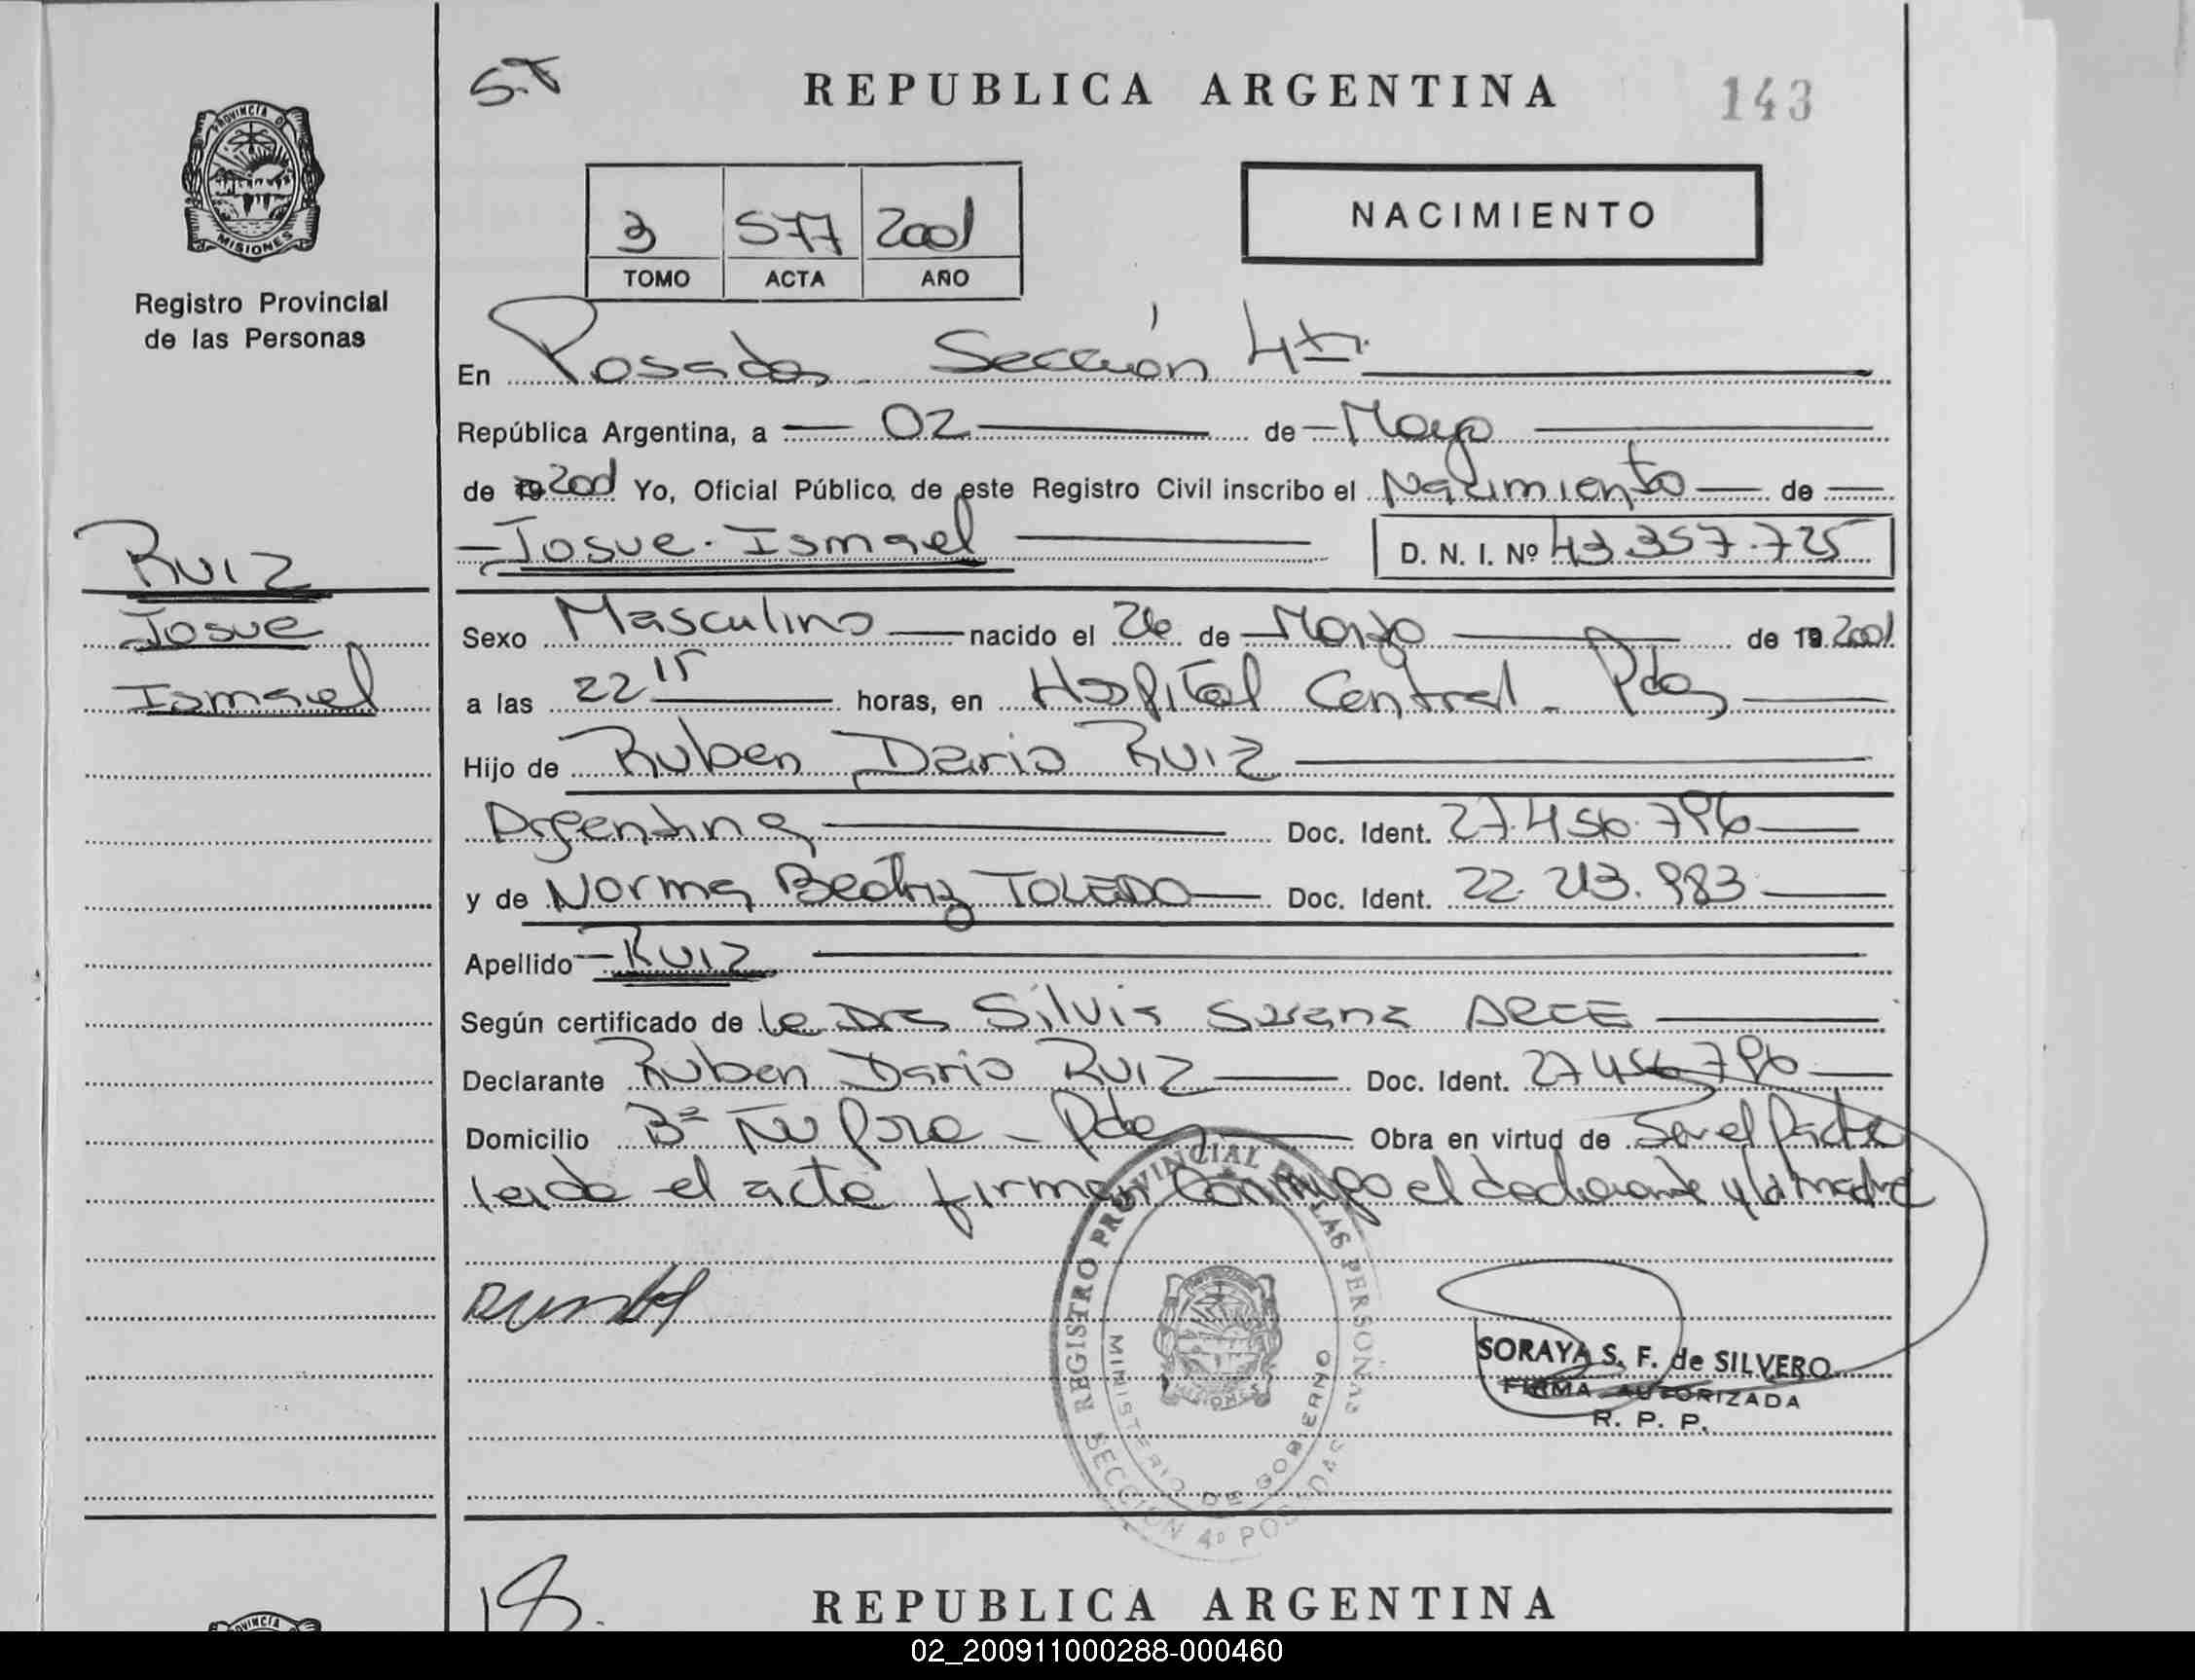 S.T
REPUBLICA ARGENTINA
143
PROVINCIA DE
MISIONES
Registro Provincial
de las Personas
3 577 2001
TOMO ACTA AÑO
NACIMIENTO
En Posadas Sección 4ta
República Argentina, a 02 de Mayo
de 19 2001 Yo, Oficial Público, de este Registro Civil inscribo el Nacimiento de
Josue Ismael D. N. I. Nº 43.357.725
RUIZ
Josue
Ismael
Sexo Masculino nacido el 26 de Marzo de 19 2001
a las 22 15 horas, en Hospital Central - Pdas
Hijo de Ruben Dario RUIZ
Argentina Doc. Ident. 27.456.796
y de Norma Beatriz TOLEDO Doc. Ident. 22.213.983
Apellido RUIZ
Según certificado de la Dra Silvia Susana ARCE
Declarante Ruben Dario RUIZ Doc. Ident. 27.456.796
Domicilio Bº - Pdas Obra en virtud de Ser el Padre
leida el acta firman conmigo el declarante y la madre
REGISTRO PROVINCIAL DE LAS PERSONAS
MINISTERIO DE GOBIERNO
SECCION 4º POSADAS
SORAYA S. F. de SILVERO
FIRMA AUTORIZADA
R. P. P.
REPUBLICA ARGENTINA
02_200911000288-000460